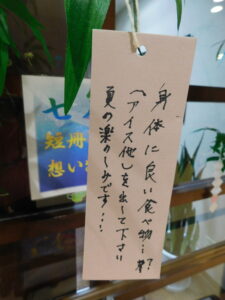 身体に良い食べ物…?
(アイス他)を出して下さい
夏の楽しみです!!!
七
短冊
想い